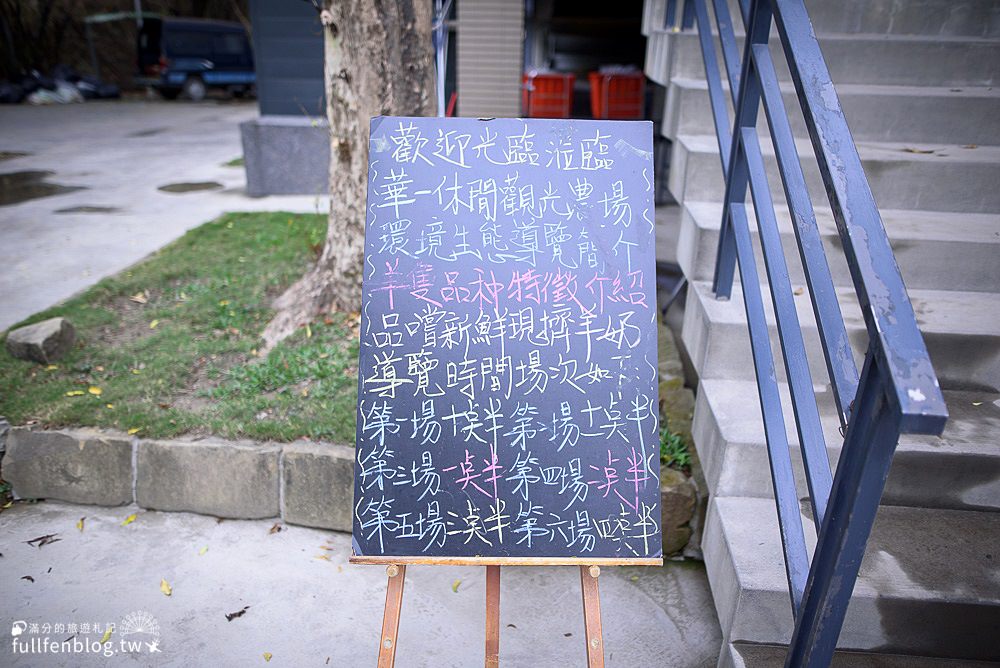 歡迎光臨 蒞臨
華一休閒觀光農場
環境生態導覽簡介
羊隻品种特徵介紹
品嚐新鮮現擠羊奶
導覽時間場次如下
第一場十点半 第二場十一点半
第三場一点半 第四場二点半
第五場三点半 第六場四点半
滿分的旅遊札記
fullfenblog.tw